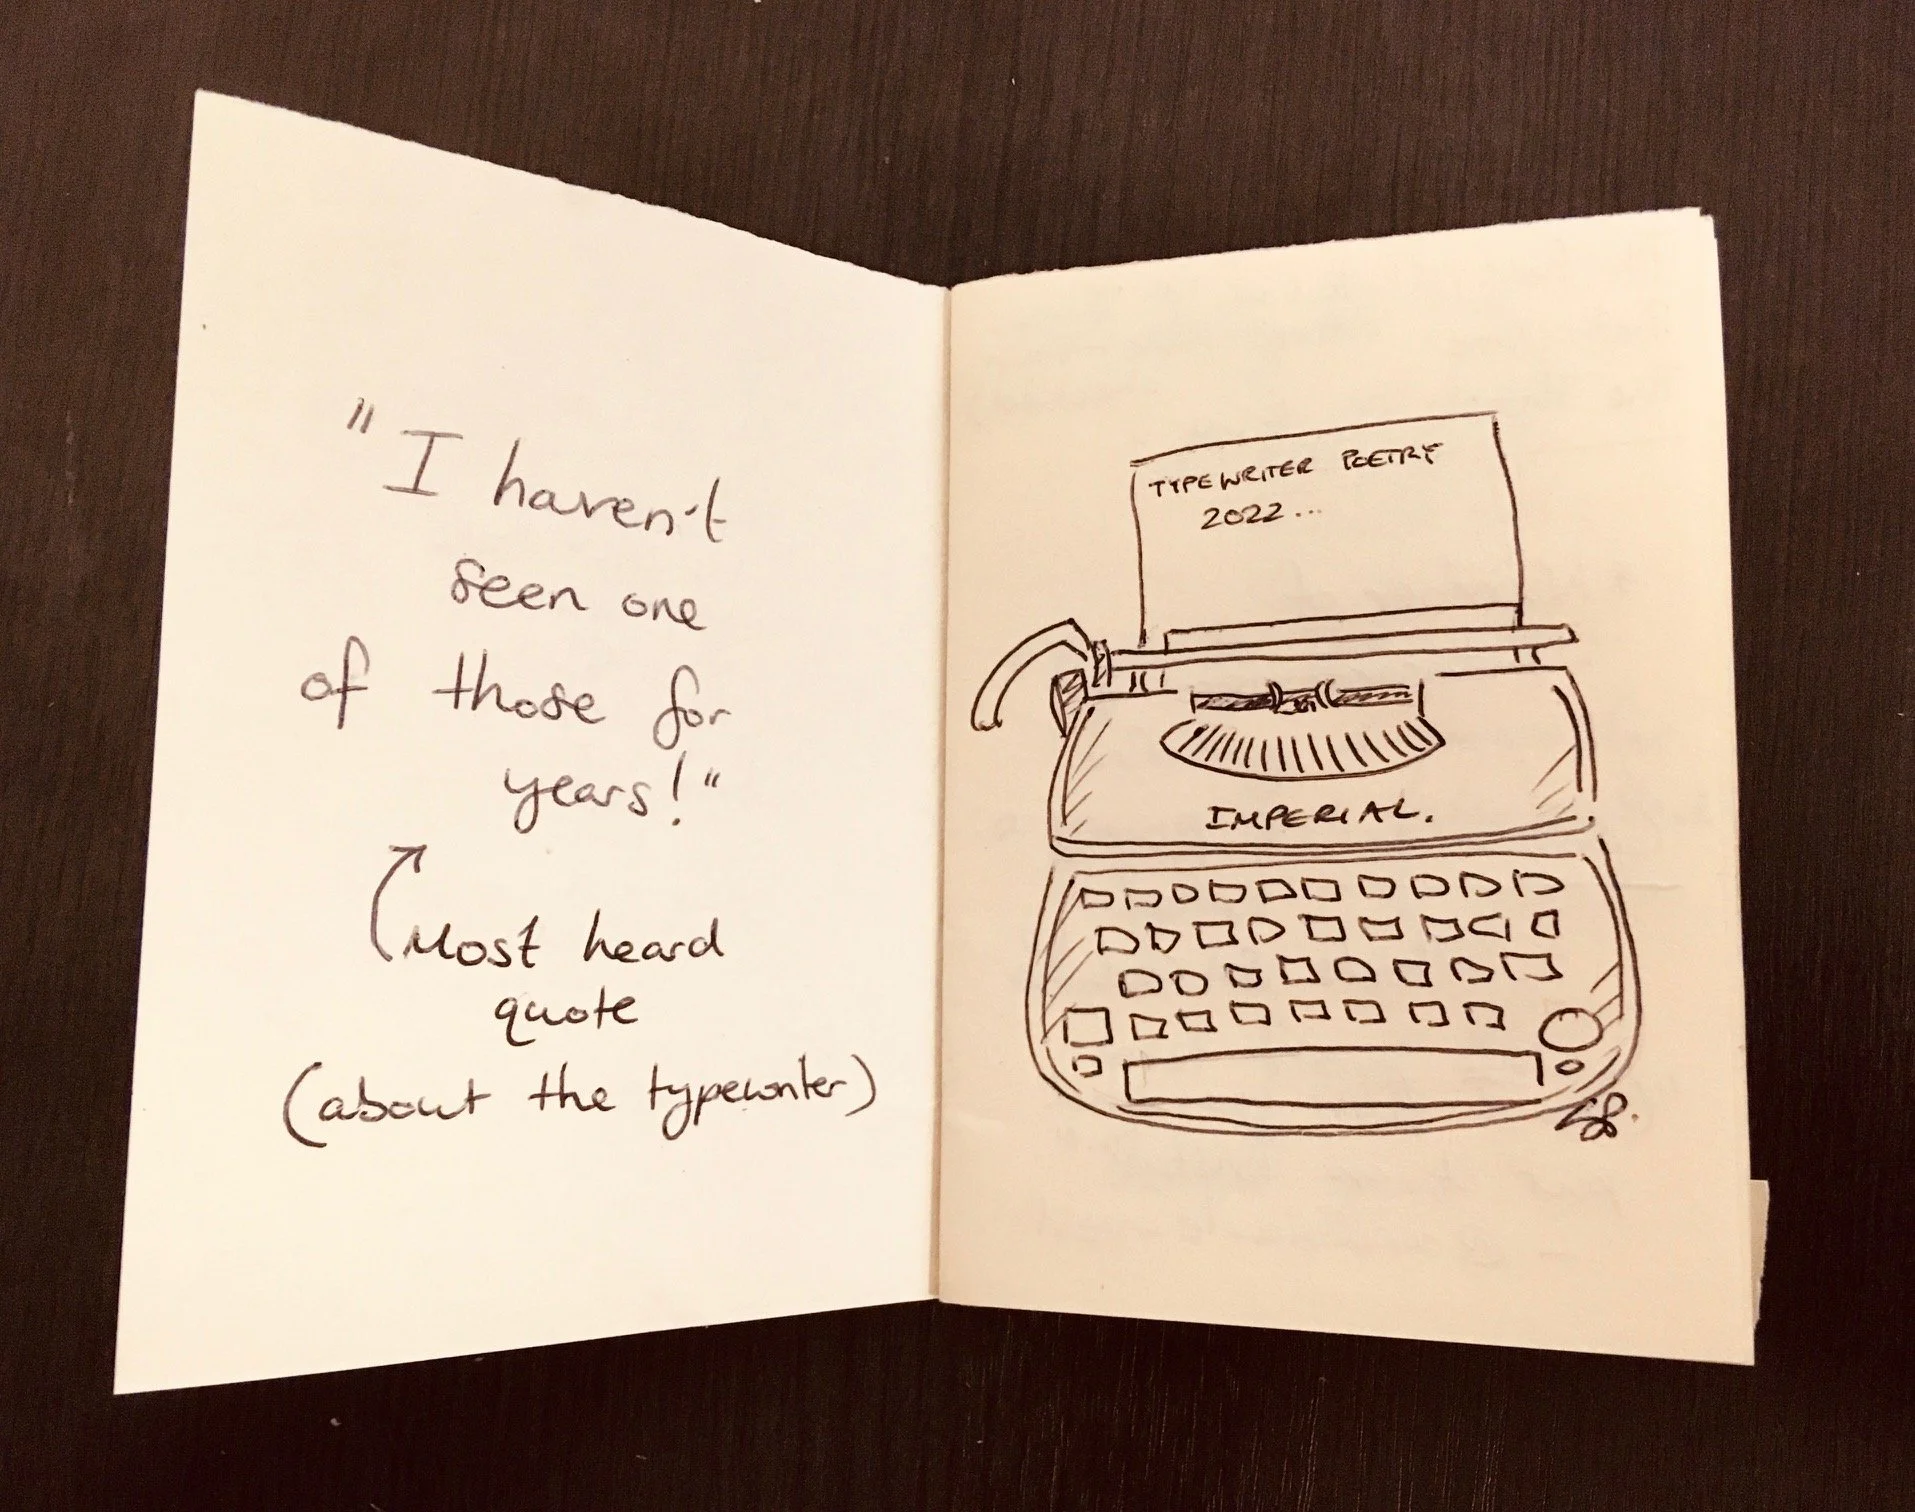 "I haven't
seen one
of those for
years!"
Most heard
quote
(about the typewriter)
TYPEWRITER POETRY
2022...
IMPERIAL.